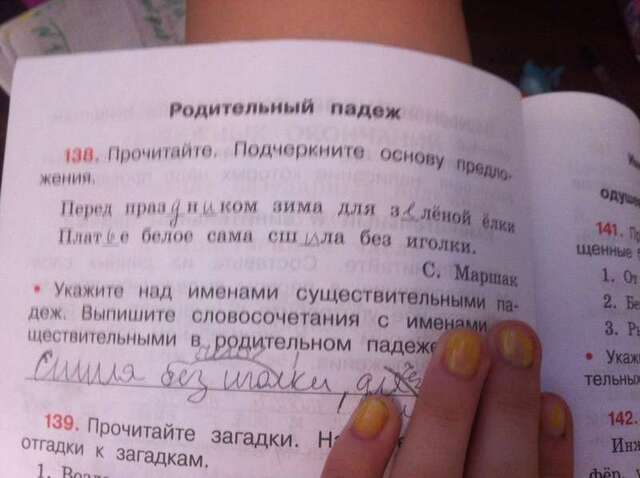 Родительный падеж
138. Прочитайте. Подчеркните основу предло-
жения.
Перед праздником зима для зелёной ёлки
Платье белое сама сшила без иголки.
С. Маршак
• Укажите над именами существительными па-
деж. Выпишите словосочетания с именами
ществительными в родительном падеже
сшила без иголки,
139. Прочитайте загадки.
отгадки к загадкам.
1.
одуше
141.
щенные
1. От
2.
3.
• Укаж
тельных
142.
Инж
фёр,